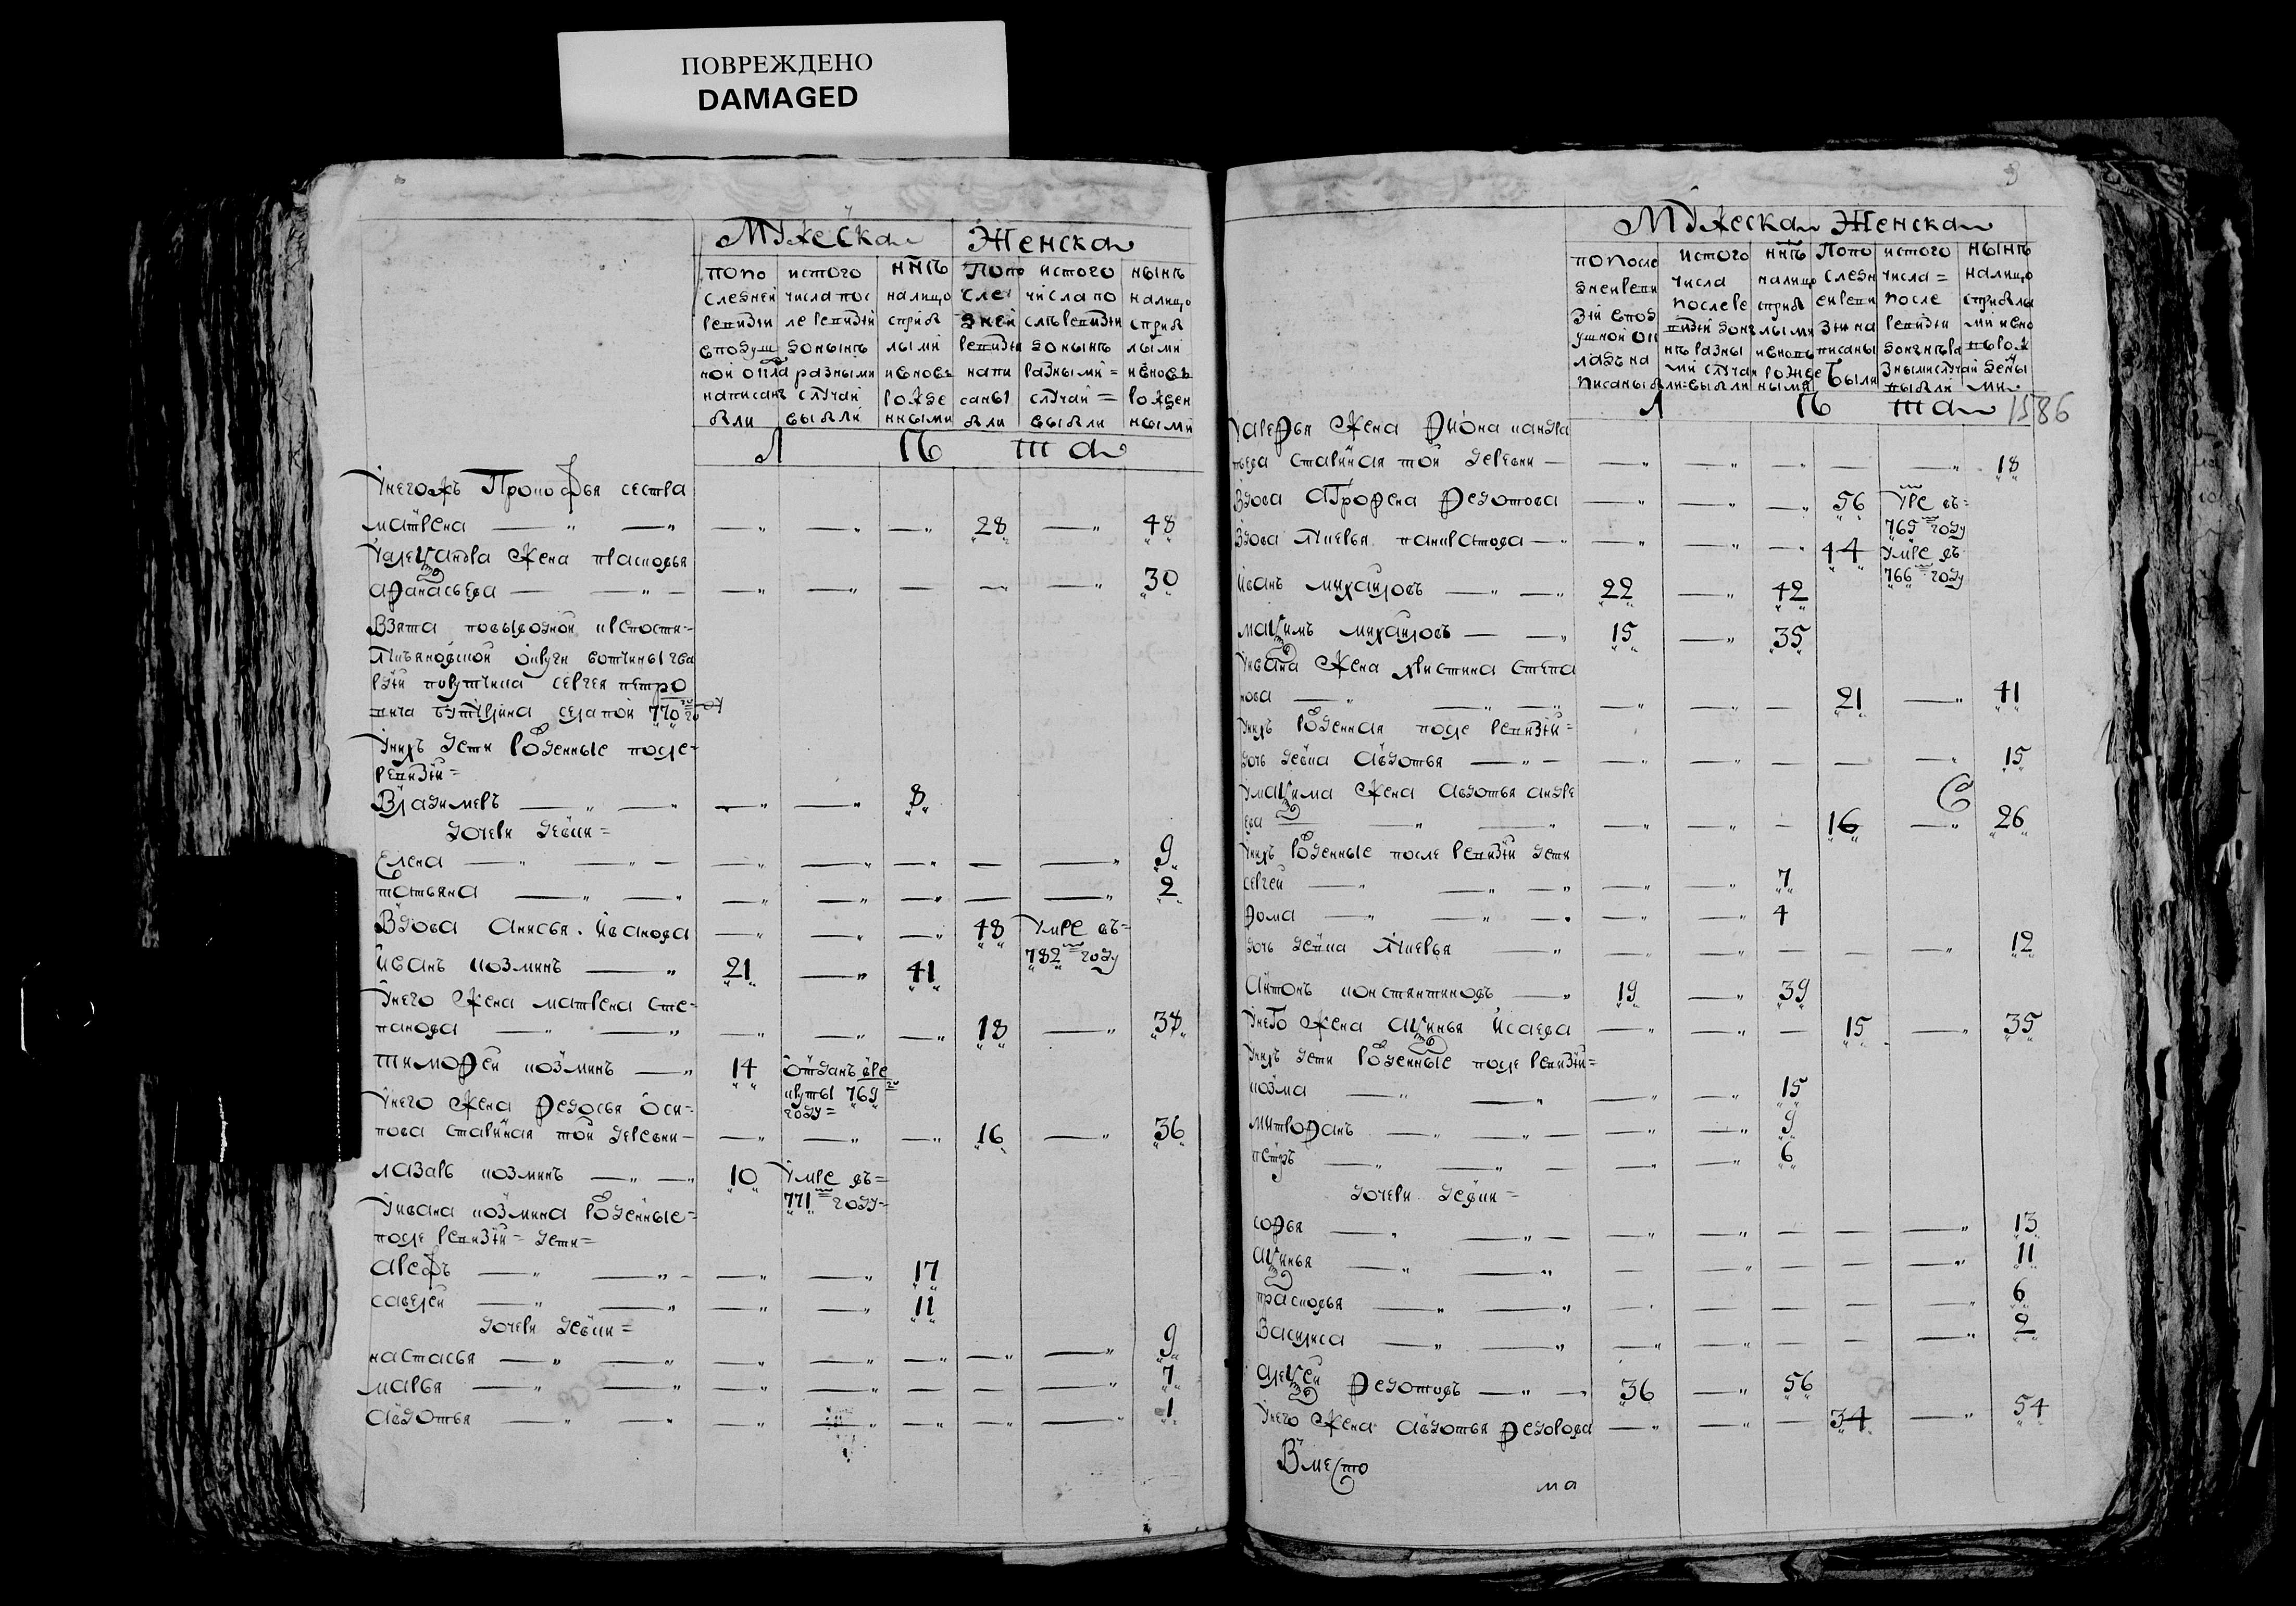 ПОВРЕЖДЕНО
DAMAGED
Мужеска Женска
попо
следней
ревизіи
в подуш
ной опла
написан
были
истого
числа пос
ле ревизіи
до нынѣ
разными
случаи
выбыли
ннѣ
налицо
с приб
лыми
и вновь
рожде
нными
Попо
слѣ
дней
ревизіи
напи
саны
были
истого
числа по
слѣ ревизіи
до нынѣ
разными =
случаи =
выбыли
нынѣ
налицо
с приб
лыми
и вновь
рожден
ными
Лѣта
У негожъ Прокофья сестра
матрена 28 48
У александра жена прасковья
афанасьева 30
Взята по выводной крепости =
вотчины
сергея петро
770 году
У нихъ дети рожденные после =
ревизіи =
Владимеръ 8
дочери девки =
Елена 9
татьяна 2
Вдова Анисья Иванова 48 Умре въ =
782 году
Иванъ козминъ 21 41
У него жена матрена сте =
панова 18 38
тимофей козминъ 14 отданъ в ре
круты 769
году =
У него жена федосья оси =
пова старинная той деревни 16 36
лазарь козминъ 10 Умре въ =
771 году
У ивана козмина рожденные =
после ревизіи = дети =
Арефъ 17
савелей 11
дочери девки =
настасья 9
марья 7
Авдотья 1
Мужеска Женска
попосле
дней реви
зіи в под
ушной оп
ладъ на
писаны были
истого
числа
после ре
визіи до ны
нѣ разны
ми случаи
выбыли
ннѣ
налицо
с приб
лыми
и вновь
рожде
ными
Попо
следн
ей реви
зіи на
писаны
были
истого
числа =
после
ревизіи
до нынѣ ра
зными случаи
выбыли
нынѣ
налицо
с прибы
ми и вно
вь рож
дены
ми
Лѣта 1586
У арефья жена фиона кандра
тьева старинная той деревни 18
Вдова Агрофена федотова 56 Умре въ =
765 году
Вдова лукерья панкратова 44 Умре въ
766 году
Иванъ михаиловъ 22 42
макимъ михаиловъ 15 35
У ивана жена христина степа
нова 21 41
У нихъ рожденная после ревизіи =
дочь девка Авдотья 15
У максима жена Авдотья андре
ева 16 26
У нихъ рожденные после ревизіи дети
сергей 7
фома 4
дочь девка лукерья 12
Антонъ константиновъ 19 39
У него жена Аксинья Исаева 15 35
У нихъ дети рожденные после ревизіи =
козма 15
митрофанъ 9
петръ 6
дочери девки =
софья 13
Аксинья 11
прасковья 6
Василиса 2
Алексей федотовъ 36 56
У него жена Авдотья федорова 34 54
Вместо
ма